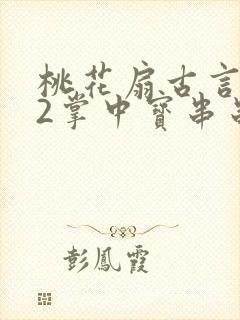 桃花扇古言
2掌中寳串
彭鳳霞